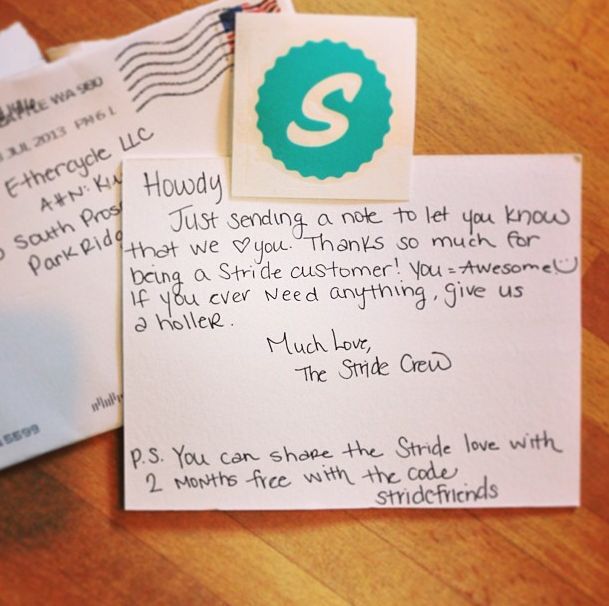 SEATTLE WA 980
JUL 2013 PM 6 L
Ethercycle LLC
Attn:
South
Park Ridg
S
Howdy
Just sending a note to let you know
that we ♡ you. Thanks so much for
being a Stride customer! You = Awesome!
If you ever need anything, give us
a holler.
Much Love,
The Stride Crew
P.S. You can share the Stride love with
2 months free with the code
stridefriends